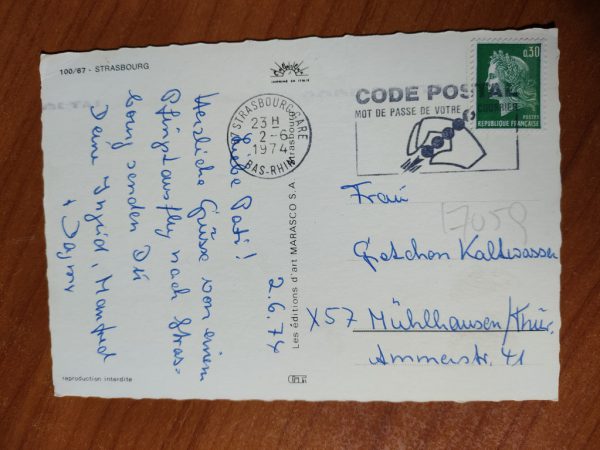 100/67 - STRASBOURG
IMPRIMÉ EN ITALIE
2.6.74
Liebe Pati!
Herzliche Grüsse von einem
Pfingstausflug nach Stras-
bourg senden Dir
Deine Ingrid, Manfred
+ Dagmar
reproduction interdite
Les éditions d'art MARASCO S.A. Strasbourg
67 STRASBOURG GARE
23 H
2 - 6
1974
BAS-RHIN
CODE POSTAL
MOT DE PASSE DE VOTRE COURRIER
0,30
POSTES
REPUBLIQUE FRANÇAISE
17059
Frau
Gretchen Kaltwasser
X57 Mühlhausen/Thür.
Ammerstr. 41